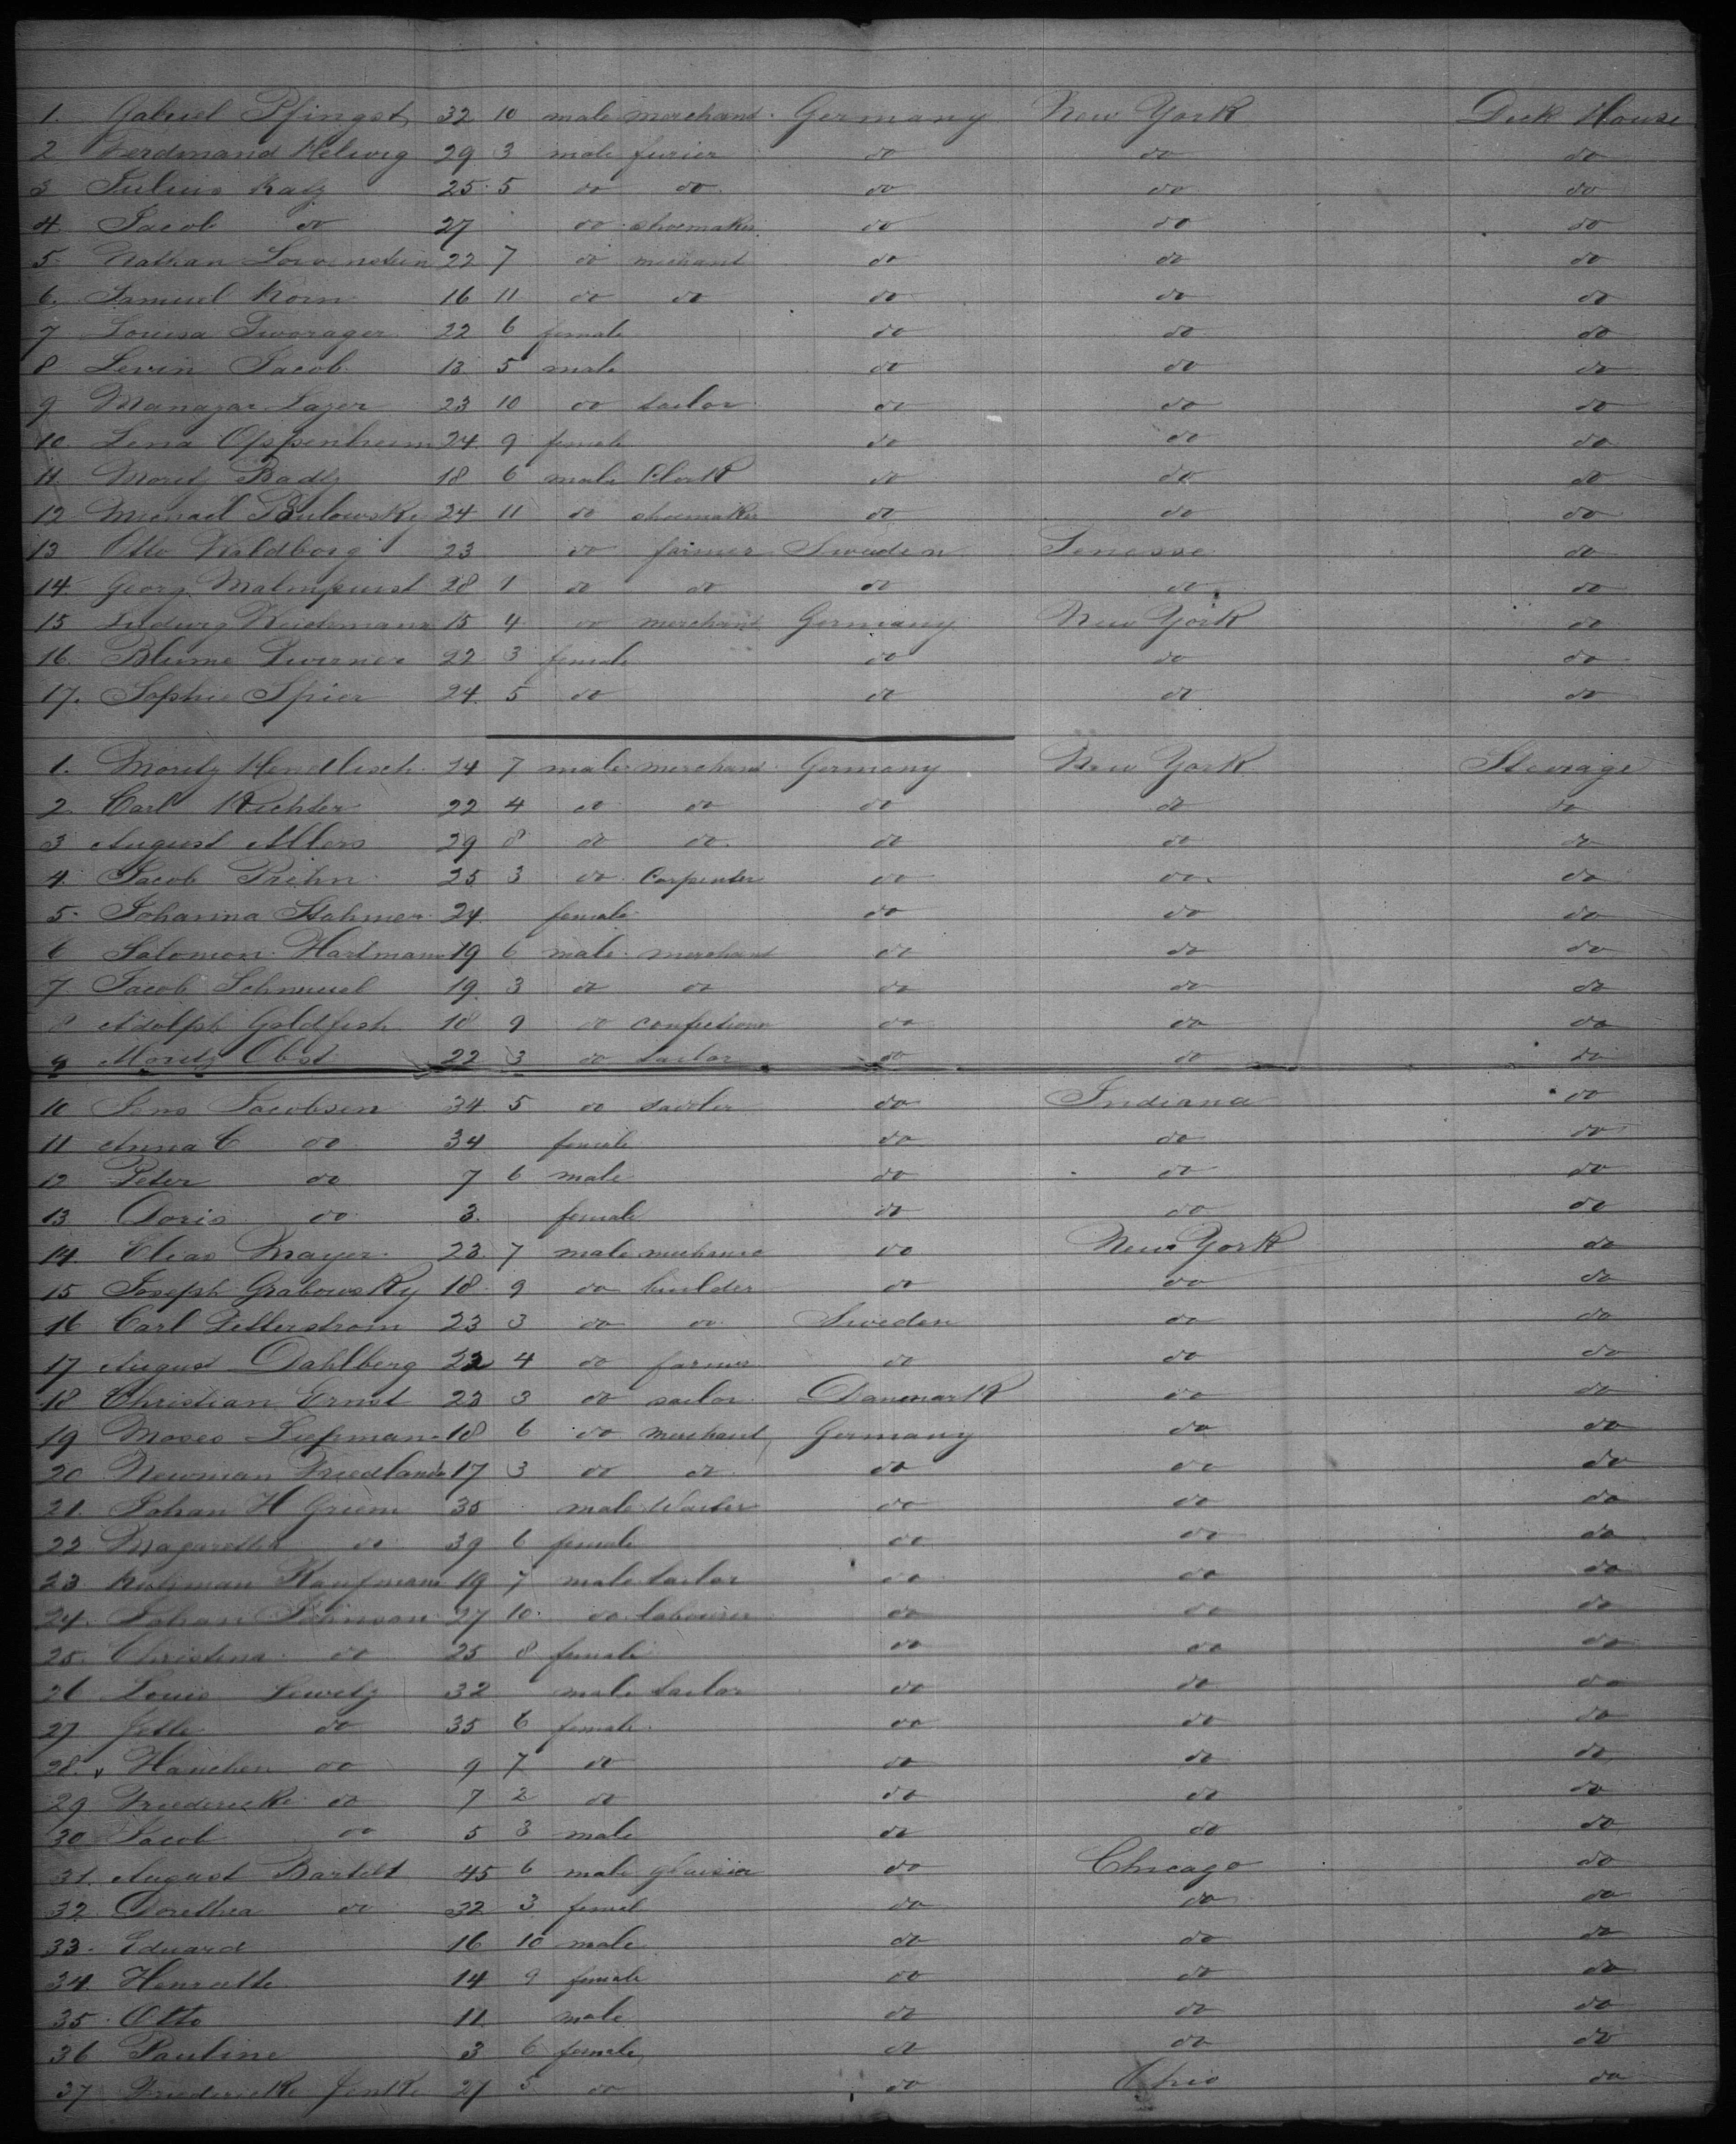 1. Gabriel Pfingst 32 10 male merchand. Germany New York Deck House
2 Ferdinand Helwig 29 3 male furier do do do
3 Julius Katz 25 5 do do do do do
4. Jacob do 27 do shoemaker do do do
5 Nathan Lowenstein 22 7 do do do do
6. Samuel Korn 16 11 do do do do do
7 Louisa 22 6 female do do do
8 Levin Jacob 13 5 male do do do
9 Lazer 23 10 do tailor do do do
10. Lena Oppenheim 24. 9 female do do do
11 Moritz 18 6 male Clerk do do do
12 Michael 24 11 do shoemaker do do do
13 Otto 23 do farmer Sweden Tenesse do
14 Georg 28 1 do do do do do
15 Ludwig 15 4 do merchant Germany New York do
16. Blume 22 3 female do do do
17. Sophie Spier 24 5 do do do do
1. Moritz 24 7 male merchand Germany New York
2. Carl Richter 22 4 do do do do do
3 August Allers 29 8 do do do do do
4. Jacob Priehn 25 3 do Carpenter do do do
5. Johanna Stahmer 24. female do do do
6 Salomon Hartmann 19 6 male merchant do do do
7 Jacob Schmuel 19 3 do do do do do
8 Adolph Goldfish 18 9 do do do do
9 Moritz Obst 22 3 do tailor do do do
10 Jens Jacobsen 34 5 do do Indiana do
11 Anna C do 34 female do do do
12 Peter do 7 6 male do do do
13 Doris do 3. female do do do
14. Elias Mayer 23 7 male do New York do
15 Joseph Grabowsky 18 9 do builder do do do
16 Carl Petterstrom 23 3 do do Sweden do do
17 August Dahlberg 22 4 do farmer do do do
18 Christian Ernst 23 3 do sailor Danmark do do
19 Moses Liepman 18 6 do merchant Germany do do
20 Newman Friedlander 17 3 do do do do do
21. Johan H Griem 35 male do do do
22 do 39 6 female do do do
23 Kaufmann 19 7 male tailor do do do
24. Johan Johnson 27 10 do labourer do do do
25. Christina do 25 8 female do do do
26 Louis Lewitz 32 male tailor do do do
27 Jette do 35 6 female do do do
28. Hanchen do 9 7 do do do do
29 Friedericke do 7 2 do do do do
30 Jacob do 5 3 male do do do
31. August Bartelt 45 6 male do Chicago do
32 Dorethea do 32 3 femel do do do
33. Eduard 16 10 male do do do
34. Henriette 14 9 female do do do
35. Otto 11 male do do do
36 Pauline 3 6 female do do do
37 Friedericke Jentke 27 5 do do Ohio do